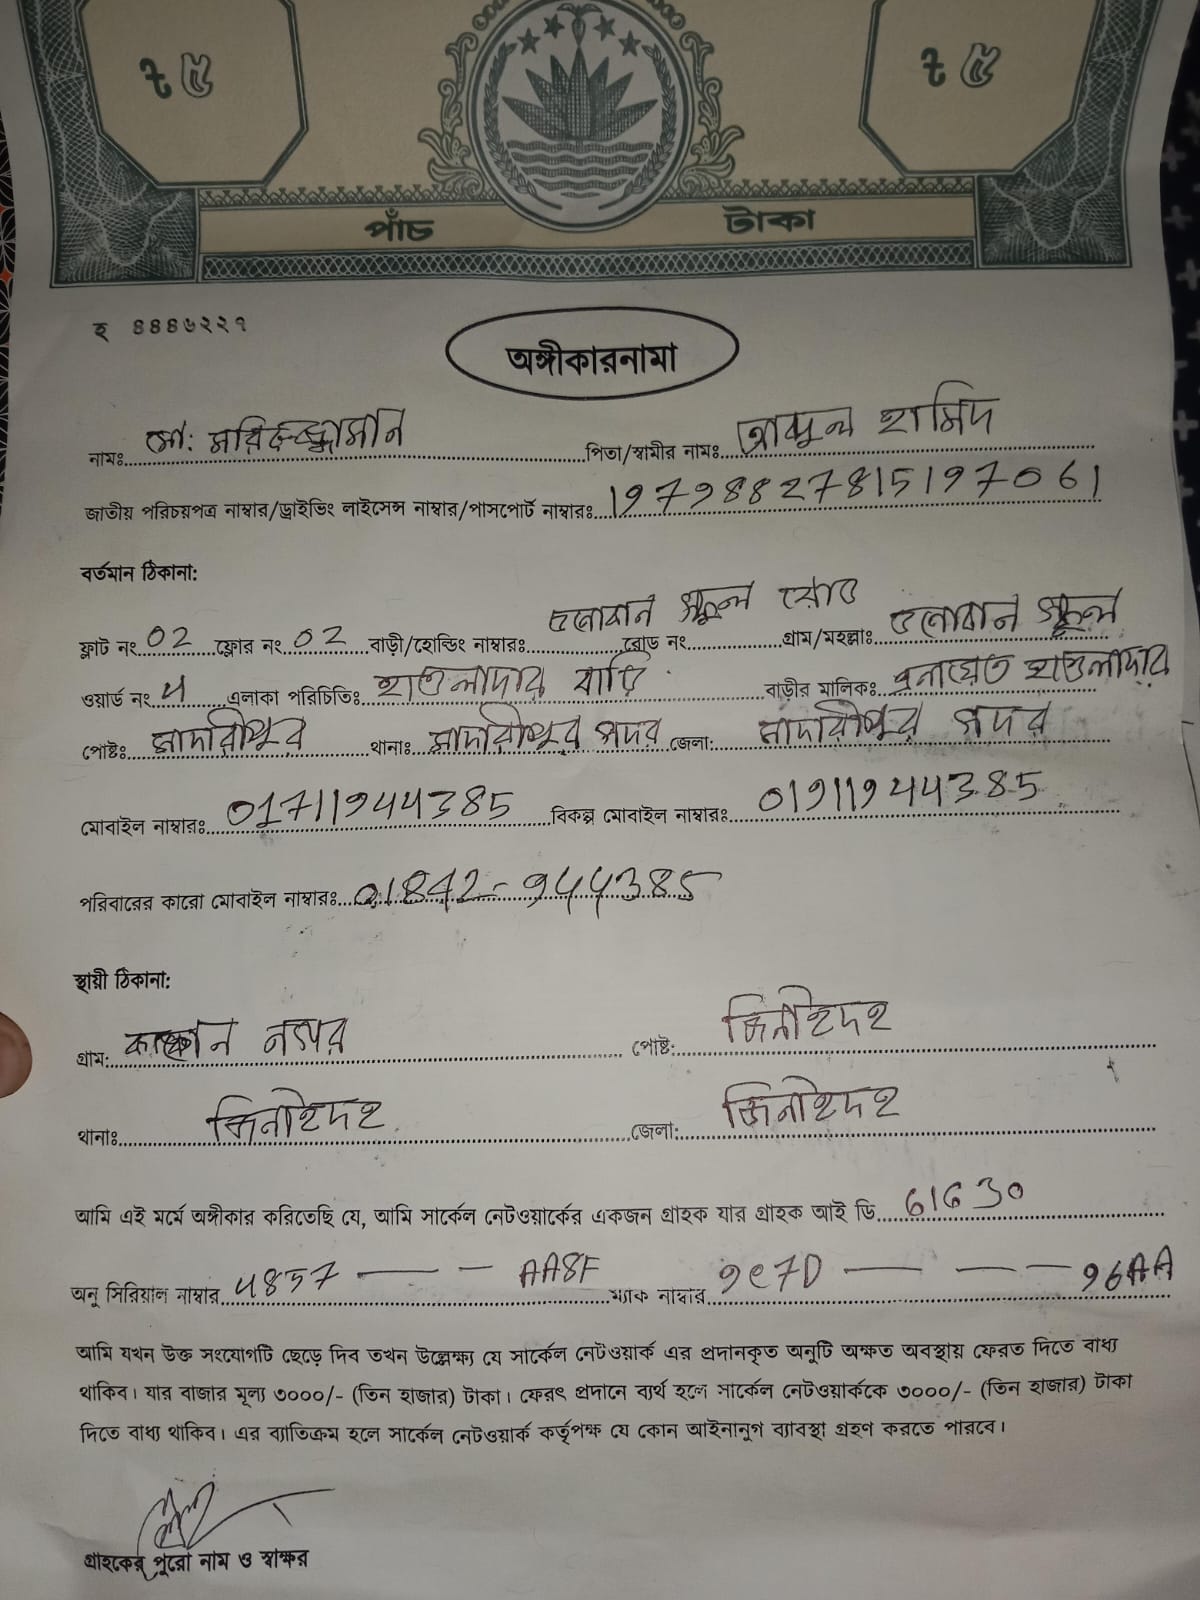 ৳ ৫ ৳ ৫
পাঁচ টাকা
হ ৪৪৪৬২২৭
অঙ্গীকারনামা
নামঃ মো: মনিরুজ্জামান পিতা/স্বামীর নামঃ আব্দুল হামিদ
জাতীয় পরিচয়পত্র নাম্বার/ড্রাইভিং লাইসেন্স নাম্বার/পাসপোর্ট নাম্বারঃ 19798827815197061
বর্তমান ঠিকানা:
ফ্লাট নং 02 ফ্লোর নং 02 বাড়ী/হোল্ডিং নাম্বারঃ স্কুল রোড রোড নং গ্রাম/মহল্লাঃ স্কুল
ওয়ার্ড নং 4 এলাকা পরিচিতিঃ হাওলাদার বাড়ি বাড়ীর মালিকঃ এনায়েত হাওলাদার
পোষ্টঃ মাদারীপুর থানাঃ মাদারীপুর সদর জেলা: মাদারীপুর সদর
মোবাইল নাম্বারঃ 01711944385 বিকল্প মোবাইল নাম্বারঃ 01911944385
পরিবারের কারো মোবাইল নাম্বারঃ 01842-944385
স্থায়ী ঠিকানা:
গ্রাম: নগর পোষ্ট: ঝিনাইদহ
থানাঃ ঝিনাইদহ জেলা: ঝিনাইদহ
আমি এই মর্মে অঙ্গীকার করিতেছি যে, আমি সার্কেল নেটওয়ার্কের একজন গ্রাহক যার গ্রাহক আই ডি 61630
অনু সিরিয়াল নাম্বার 4857 — - AA8F ম্যাক নাম্বার 9e7D — — — 96AA
আমি যখন উক্ত সংযোগটি ছেড়ে দিব তখন উল্লেক্ষ্য যে সার্কেল নেটওয়ার্ক এর প্রদানকৃত অনুটি অক্ষত অবস্থায় ফেরত দিতে বাধ্য
থাকিব। যার বাজার মূল্য ৩০০০/- (তিন হাজার) টাকা। ফেরৎ প্রদানে ব্যর্থ হলে সার্কেল নেটওয়ার্ককে ৩০০০/- (তিন হাজার) টাকা
দিতে বাধ্য থাকিব। এর ব্যাতিক্রম হলে সার্কেল নেটওয়ার্ক কর্তৃপক্ষ যে কোন আইনানুগ ব্যাবস্থা গ্রহণ করতে পারবে।
গ্রাহকের পুরো নাম ও স্বাক্ষর